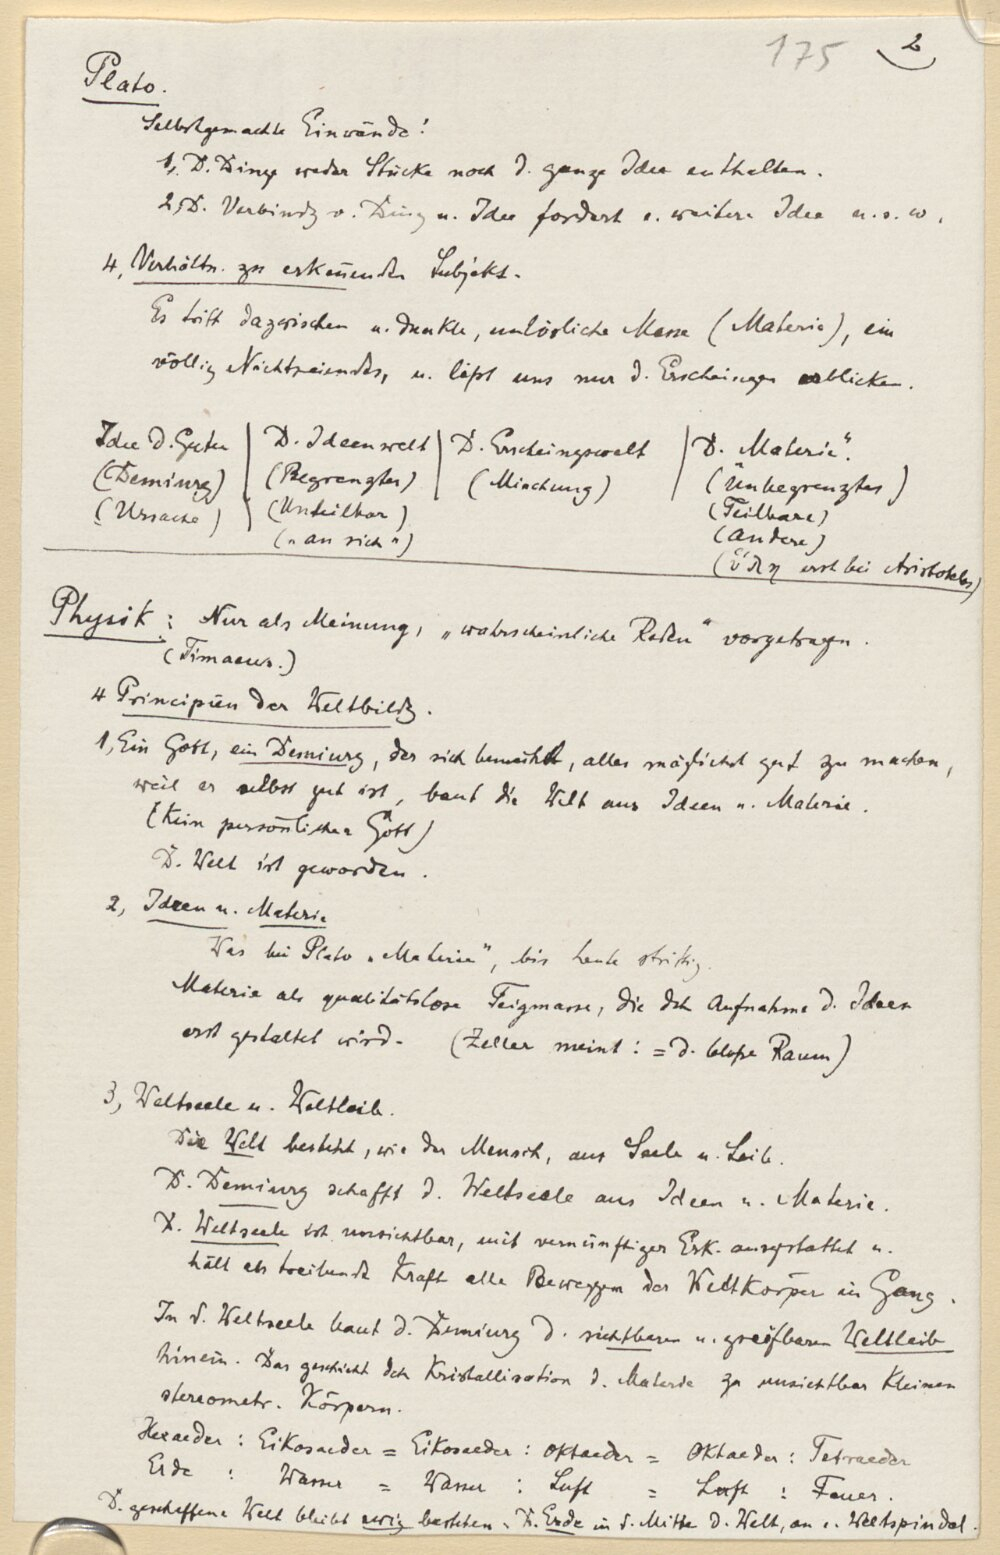 175 2
Plato.
Selbstgemachte Einwände:
1, D. Dinge weder Stücke noch d. ganze Idee enthalten.
2, D. Verbindg v. Ding u. Idee fordert e. weitere Idee u.s.w.
4, Verhältn. zu erkennenden Subjekt.
Es tritt dazwischen e. dunkle, unlösliche Masse (Materie), ein
völlig Nichtseiendes, u. läßt uns nur d. Erscheingen erblicken.
Idee d. Guten | D. Ideenwelt | D. Erscheingswelt | D. "Materie".
(Demiurg) (Begrenztes) (Mischung) (Unbegrenztes)
(Ursache) (Unteilbar) (Teilbare)
("an sich") (andere)
(ὕλη erst bei Aristoteles)
Physik: Nur als Meinung, „wahrscheinliche Reden" vorgetragen.
(Timaeus.)
4 Principien der Weltbildg.
1, Ein Gott, ein Demiurg, der sich bemüht, alles möglichst gut zu machen,
weil er selbst gut ist, baut die Welt aus Ideen u. Materie.
(Kein persönlicher Gott)
D. Welt ist geworden.
2, Ideen u. Materie
Was bei Plato „Materie", bis heute strittig.
Materie als qualitätslose Teigmasse, die dch Aufnahme d. Ideen
erst gestaltet wird. (Zeller meint: = d. bloße Raum)
3, Weltseele u. Weltleib.
Die Welt besteht, wie der Mensch, aus Seele u. Leib.
D. Demiurg schafft d. Weltseele aus Ideen u. Materie.
D. Weltseele ist unsichtbar, mit vernünftiger Erk. ausgestattet u.
hält als treibende Kraft alle Beweggen der Weltkörper in Gang.
In d. Weltseele baut d. Demiurg d. sichtbaren u. greifbaren Weltleib
hinein. Das geschieht dch Kristallisation d. Materie zu unsichtbar kleinen
stereometr. Körpern.
Hexaeder : Eikosaeder = Eikosaeder : Oktaeder = Oktaeder : Tetraeder
Erde : Wasser = Wasser : Luft = Luft : Feuer.
D. geschaffene Welt bleibt ewig bestehen. D. Erde in d. Mitte d. Welt, an e. Weltspindel.